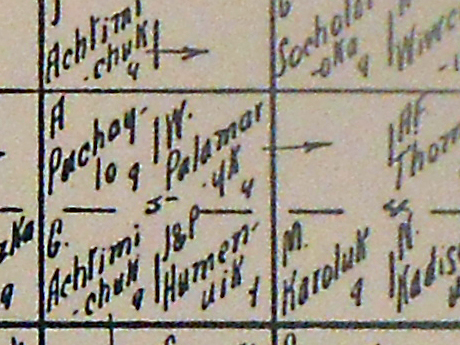 Achtimi
-chuk
y
Sochola
-oka
q
A
Pachoy-
lo q
W.
Palamar
-yk
y
AF
Thom
5
zka
q
G.
Achtimi
-chuk
q
J&P
Humen-
uik
1
M.
Karoluk
q
N.
Kadis